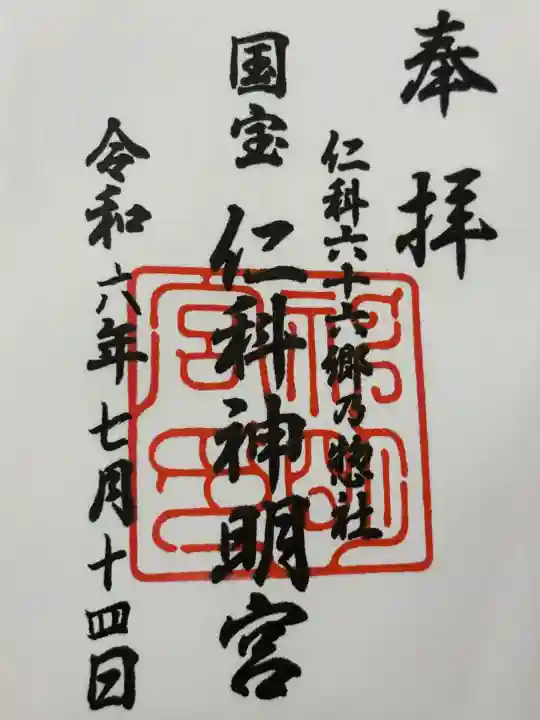 奉拝
仁科六十六郷乃惣社
国宝 仁科神明宮
令和六年七月十四日
神明宮印